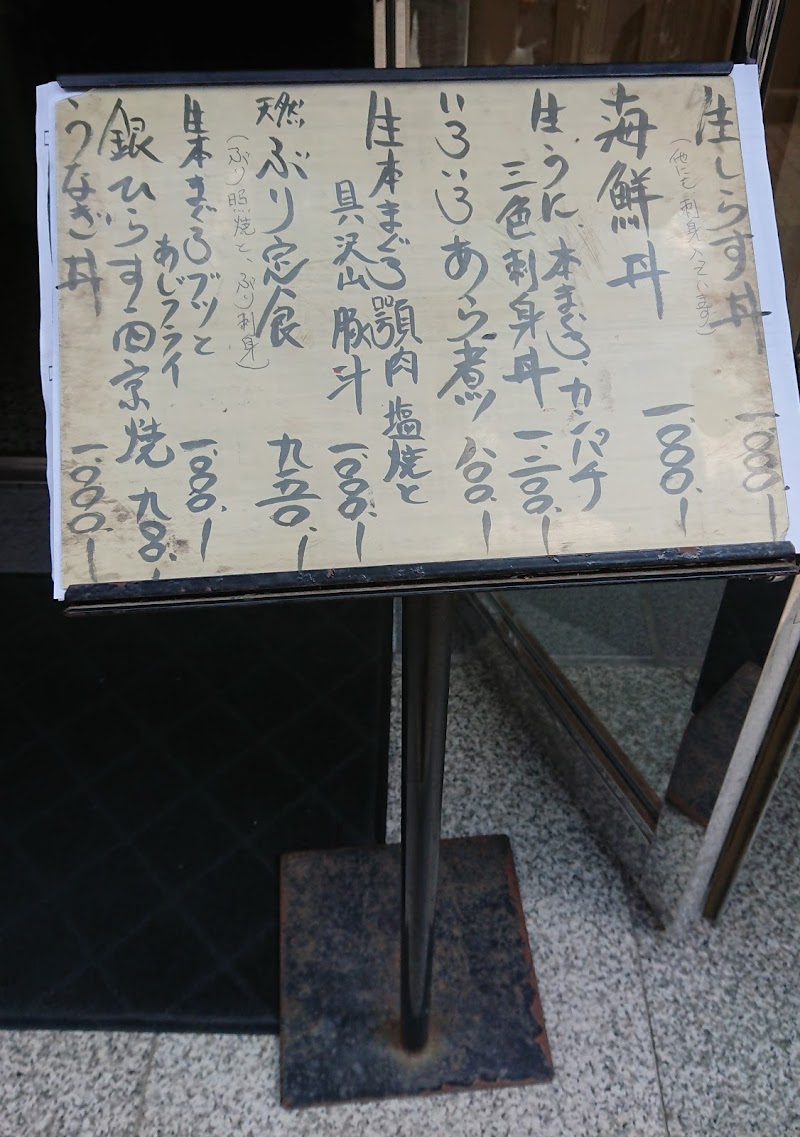 生しらす丼 一、000、ー
(他にも刺身入っています)
海鮮丼 一、000、ー
生うに、本まぐろ、カンパチ
三色刺身丼 一、二00、ー
いろいろあら煮 八00、ー
生本まぐろ顎肉塩焼と
具沢山豚汁 一、000、ー
天然ぶり定食 九五0、ー
(ぶり照焼と、ぶり刺身)
生本まぐろブツと
あじフライ 一、000、ー
銀ひらす西京焼 九五0、ー
うなぎ丼 一、000、ー